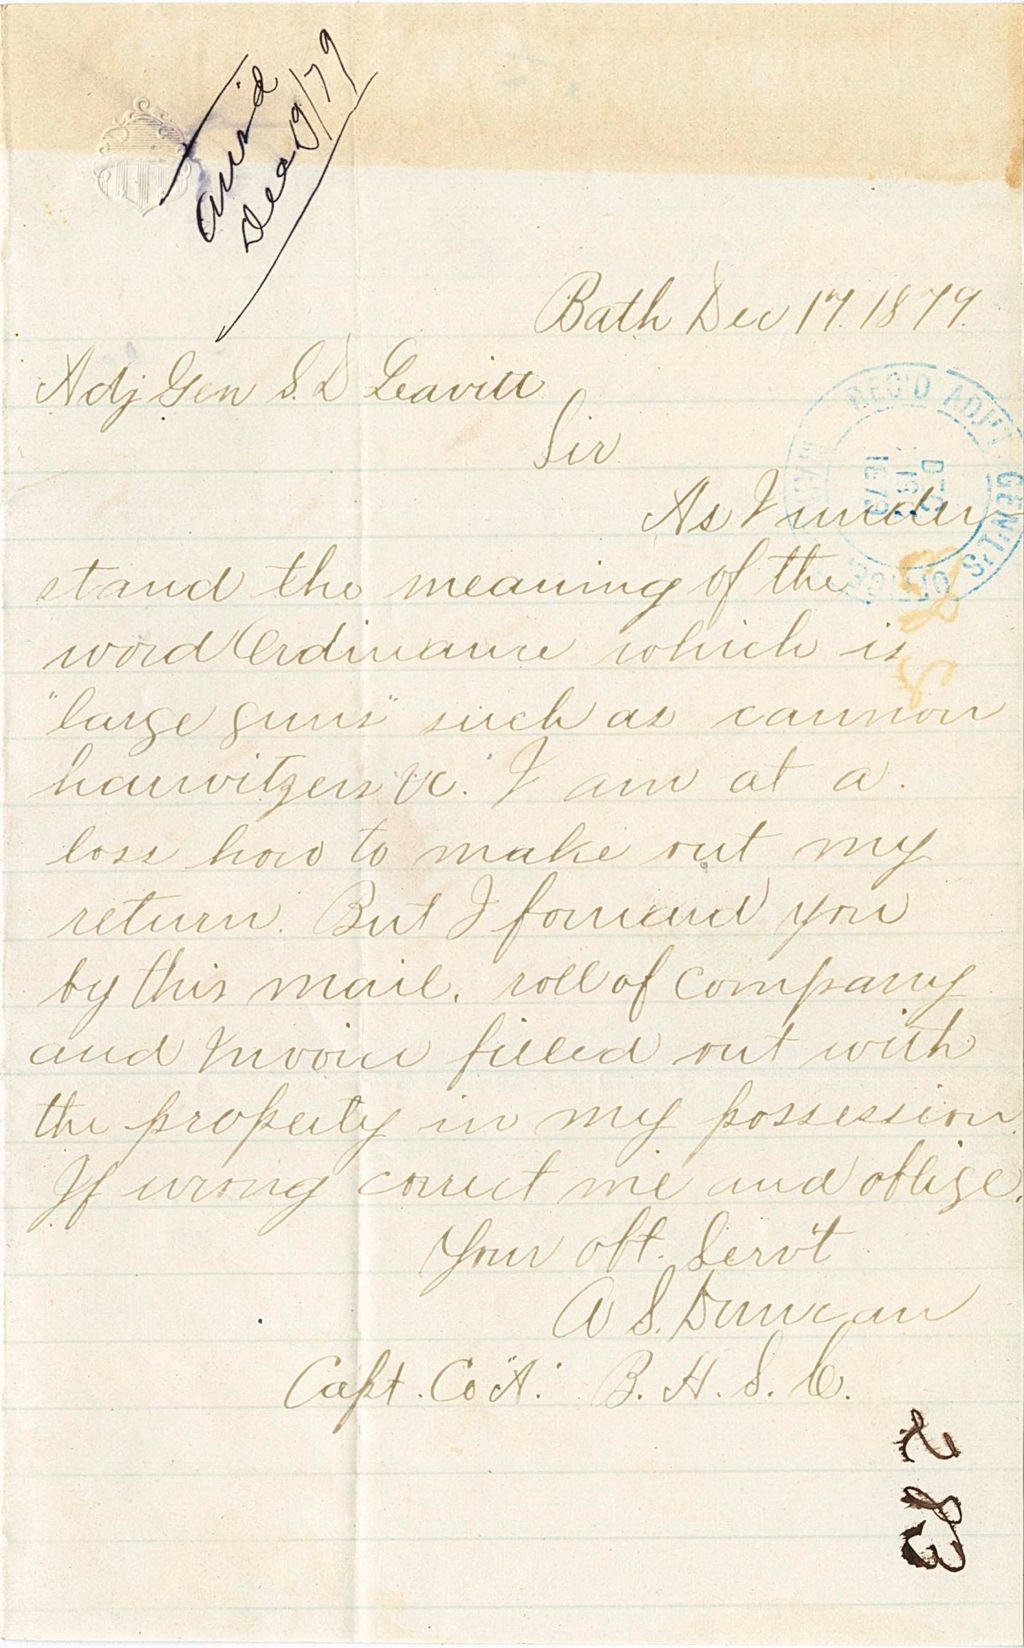 Ans'd
Dec 19/79
Bath Dec 17. 1879.
Adj Gen S. D Leavitt
Sir
REC'D ADJ'T GEN'L'S OFFICE
DEC 19 1879
MAINE
As I under
stand the meaning of the
word Ordinance which is
"large guns" such as cannon
hauwitzers &c. I am at a
loss how to make out my
return. But I forward you
by this mail, roll of company
and Invoice filled out with
the property in my possession.
If wrong correct me and oblige.
Your obt. Serv't
A S. Duncan
Capt. Co "A." B. H. S. C.
283